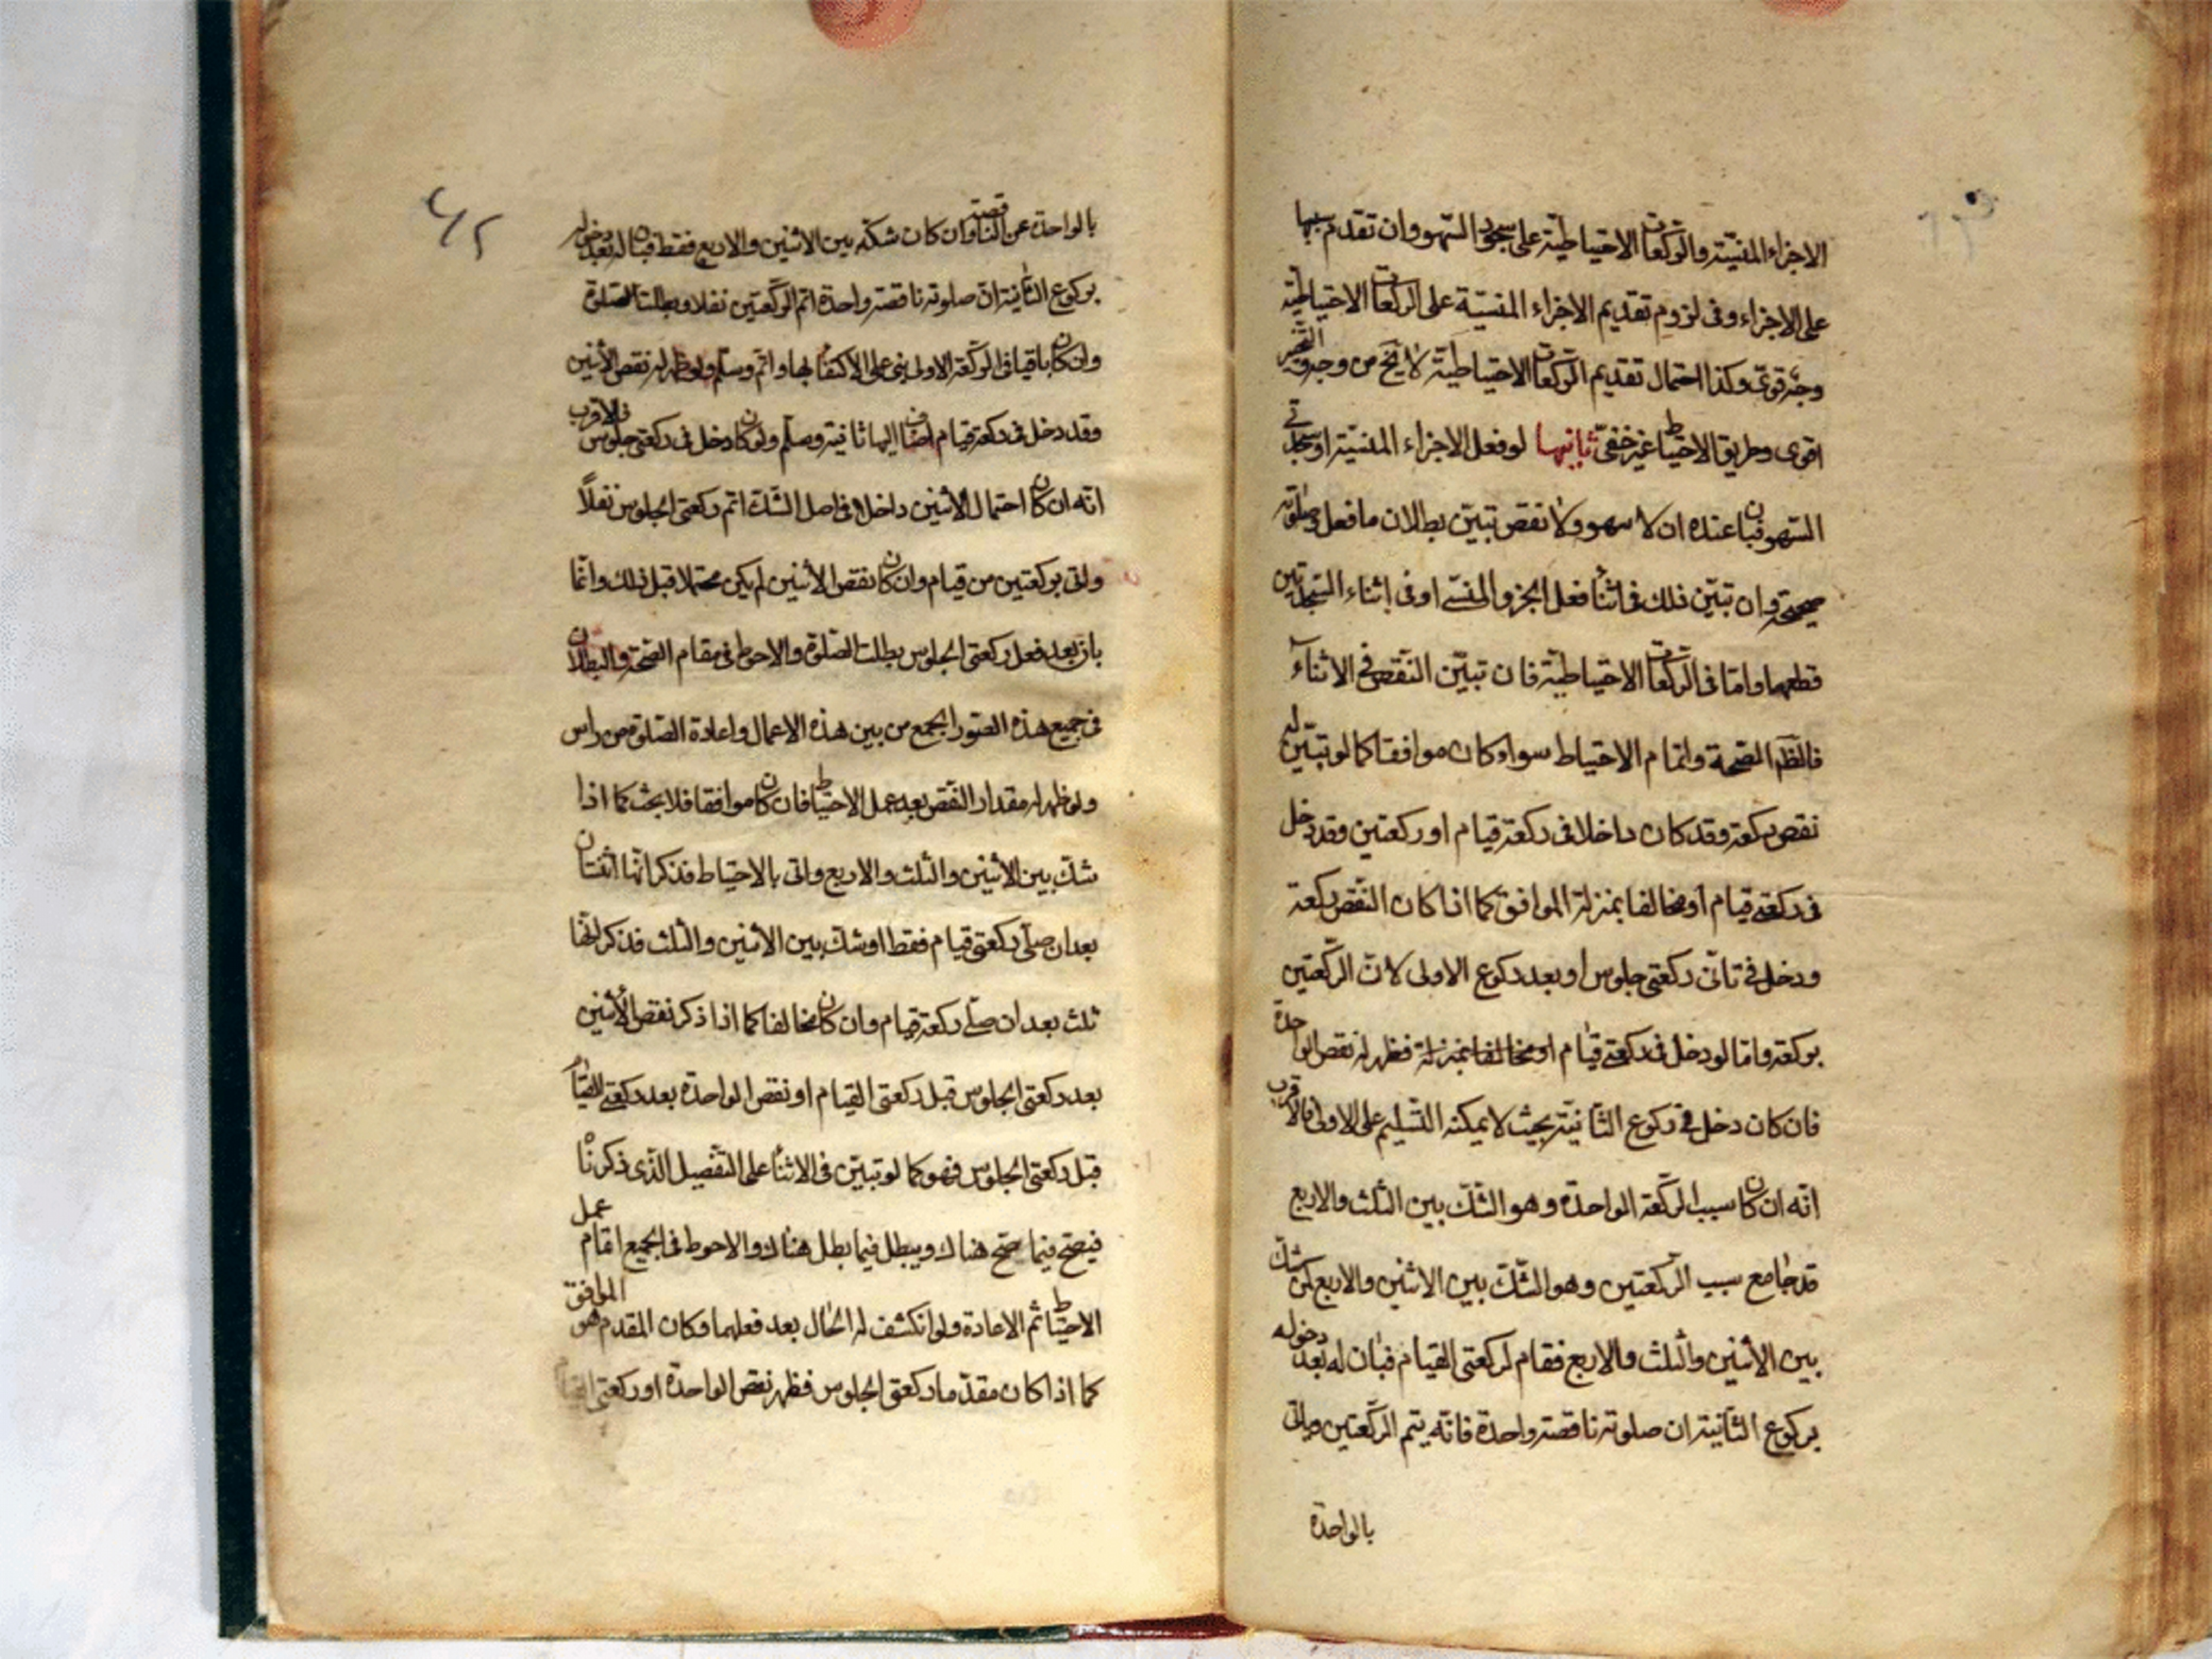 الاجزاء المنسيّة والركعات الاحتياطيّة على سجود السّهو وان تقدم سببها
على الاجزاء وفى لزوم تقديم الاجزاء المنسيّة على الركعات الاحتياطيّة
وجه قوىّ وكذا احتمال تقديم الركعات الاحتياطيّة لا يخ من وجه و التخيير
اقوى وطريق الاحتياط غير خفىّ ثانيها لو فعل الاجزاء المنسيّة او سجدتى
السّهو فبان عنده ان لا سهو ولا نقص تبيّن بطلان ما فعل وصلوته
صحيحة وان تبيّن ذلك فى اثناء فعل الجزء المنسى او فى اثناء السّجدتين
قطعهما وامّا فى الركعات الاحتياطيّة فان تبيّن النّقص فى الاثناء
فالظّم الصّحة واتمام الاحتياط سواء كان موافقا كما لو تبيّن له
نقص ركعة وقد كان داخلا فى ركعة قيام او ركعتين وقد دخل
فى ركعتى قيام او مخالفا بمنزلة الموافق كما اذا كان النّقص ركعة
ودخل فى ثانى ركعتى جلوس او بعد ركوع الاولى لانّ الرّكعتين
بركعة وامّا لو دخل فى ركعتى قيام او مخالفا بمنزلة فظهر له نقص الواحدة
فان كان دخل فى ركوع الثّانية بحيث لا يمكنه التّسليم على الاولى فالاقرب
انّه ان كان سبب الرّكعة الواحدة وهو الشّكّ بين الثّلث والاربع
قد جامع سبب الرّكعتين وهو الشّكّ بين الاثنين والاربع كمن شكّ
بين الاثنين والثلث والاربع فقام لركعتى القيام فبان له بعد دخوله
بركوع الثّانية ان صلوته ناقصة واحدة فانّه يتم الرّكعتين واتى
بالواحدة
بالواحدة عن الناقصة وان كان شكّه بين الاثنين والاربع فقط فبان له بعد دخوله
بركوع الثّانية انّ صلوته ناقصة واحدة اتم الرّكعتين نفلا وبطلت الصّلوة
وان كان باقيا فى الرّكعة الاولى بنى على الاكتفاء بها واتم وسلّم ولو ظهر له نقص الاثنين
وقد دخل فى ركعة قيام اضاف اليها ثانية وسلّم ولو كان دخل فى ركعتى جلوس فالاقرب
انّه ان كان احتمال الاثنين داخلا فى اصل الشّكّ اتم ركعتى الجلوس نفلاً
واتى بركعتين من قيام وان كان نقص الاثنين لم يكن محتملا قبل ذلك وانّما
بان بعد فعل ركعتى الجلوس بطلت الصّلوة والاحوط فى مقام الصّحة والبطلان
فى جميع هذه الصّور الجمع من بين هذه الاعمال واعادة الصّلوة من راس
ولو ظهر له مقدار النّقص بعد عمل الاحتياط فان كان موافقا فلا بحث كما اذا
شكّ بين الاثنين والثّلث والاربع واتى بالاحتياط فذكر انّها اثنتان
بعد ان صلّى ركعتى قيام فقط او شكّ بين الاثنين والثّلث فذكر انّها
ثلث بعد ان صلّى ركعة قيام وان كان مخالفا كما اذا ذكر نقص الاثنين
بعد ركعتى الجلوس قبل ركعتى القيام او نقص الواحدة بعد ركعتى القيام
قبل ركعتى الجلوس فهو كما لو تبيّن فى الاثناء على التّفصيل الّذى ذكرناه
فيصحّ فيما صحّ هناك ويبطل فيما بطل هناك والاحوط فى الجميع اتمام عمل
الاحتياط ثم الاعادة ولو انكشف له الحال بعد فعلهما وكان المقدم هو الموافق
كما اذا كان مقدّما ركعتى الجلوس فظهر نقص الواحدة او ركعتى